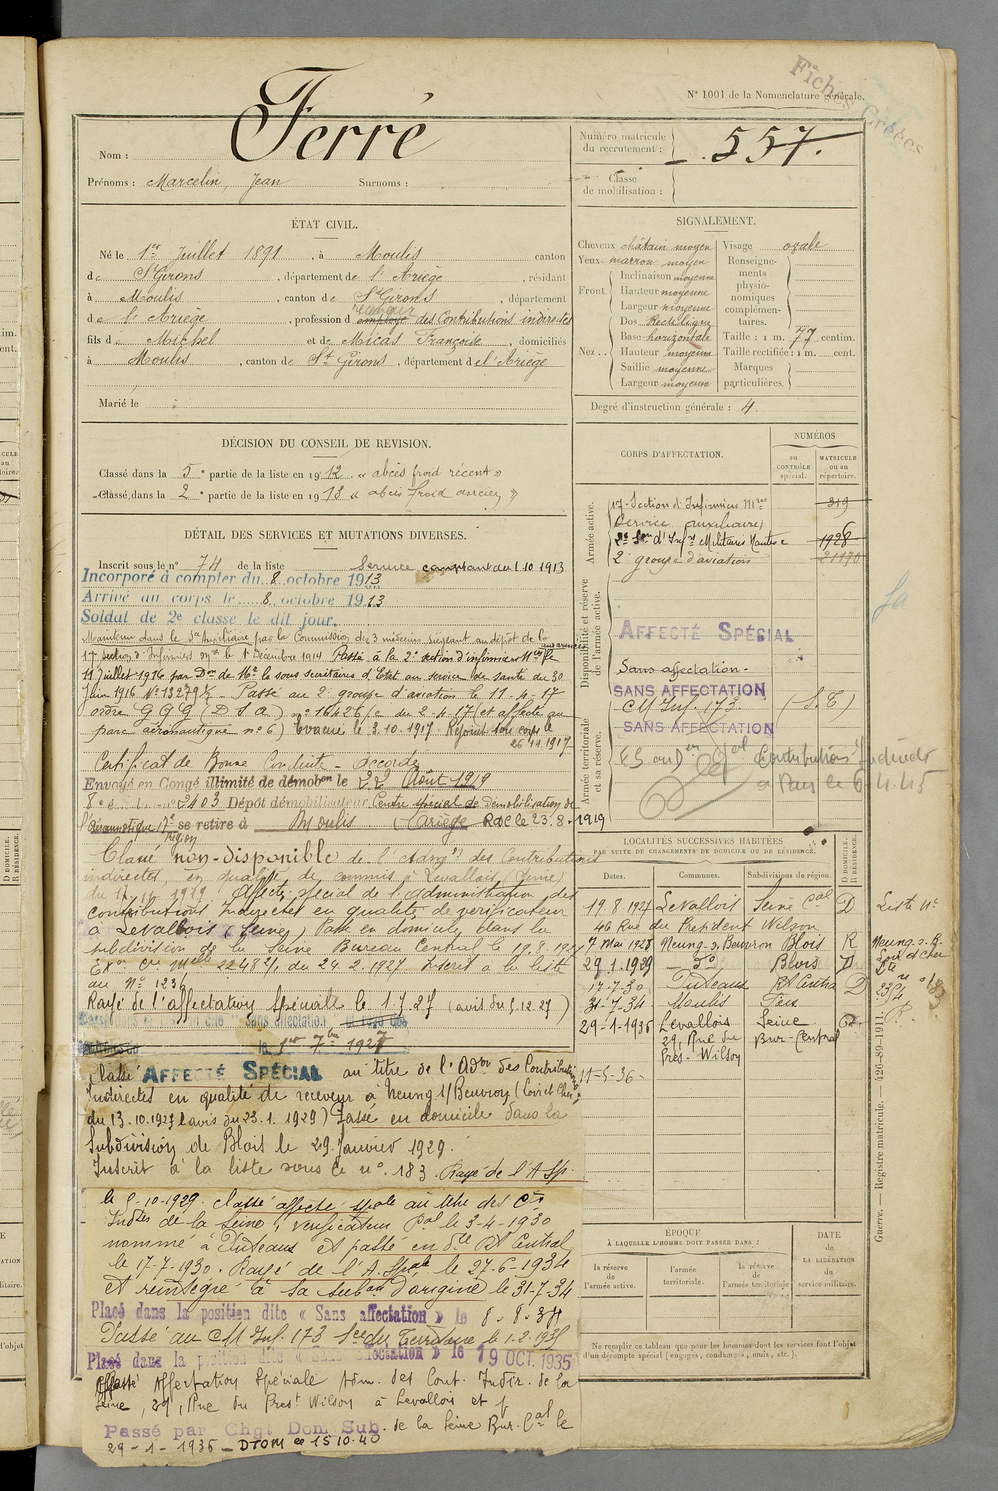 Fiches Créées
N° 1001 de la Nomenclature générale.
Nom : Ferré
Prénoms : Marcelin, Jean Surnoms :
Numéro matricule du recrutement : 557.
Classe de mobilisation :
ÉTAT CIVIL.
Né le 1er Juillet 1891, à Moulis canton
de St Girons, département de l'Ariège, résidant
à Moulis, canton de St Girons, département
de l'Ariège, profession d employé receveur des Contributions indirectes
fils de Michel et de Micas Françoise, domiciliés
à Moulis, canton de St Girons, département de l'Ariège
Marié le :
SIGNALEMENT.
Cheveux châtain moyen
Yeux marron moyen
Front. Inclinaison moyenne
Hauteur moyenne
Largeur moyenne
Nez... Dos Rectiligne
Base horizontale
Hauteur moyenne
Saillie moyenne
Largeur moyenne
Visage ovale
Renseignements physionomiques complémentaires.
Taille : 1 m. 77 centim.
Taille rectifiée : 1 m. cent.
Marques particulières.
Degré d'instruction générale : 4.
DÉCISION DU CONSEIL DE REVISION.
Classé dans la 5e partie de la liste en 1912. « abcès froid récent »
Classé dans la 2e partie de la liste en 1913 « abcès froid ancien »
DÉTAIL DES SERVICES ET MUTATIONS DIVERSES.
Inscrit sous le n° 74 de la liste Service comptant du 1.10.1913
Incorporé à compter du 8 octobre 1913
Arrivé au corps le 8 octobre 1913
Soldat de 2e classe le dit jour.
Maintenu dans le Sce Auxiliaire par la Commission des 3 médecins siégeant au dépôt de la
17 Section d'Infirmiers Mres le Décembre 1914 Passé à la 2e section d'infirmiers Mres le
11 Juillet 1916 par Don de Mr le sous secrétaire d'Etat au service de santé du 30
Juin 1916 N° 13279 Passé au 2e groupe d'aviation le 11-4-17
ordre G Q G (D S A) n° 16426/c du 2-4-17 (et affecté au
parc aéronautique n° 6) Evacué le 3.10.1917 Rejoint son corps le
26.11.1917
Certificat de Bonne Conduite - accordé
Envoyé en Congé illimité de démobon le 22 Août 1919
2403 Dépôt démobilisateur Centre spécial de démobilisation de
l'aéronautique 17e Région se retire à Moulis (Ariège) RDC le 23-8-1919
Classé "non-disponible" de l'Admon des Contributions
indirectes, en qualité de commis à Levallois (Seine)
du 17.11.1919. Affecté spécial de l'administration des
contributions Indirectes en qualité de vérificateur
à Levallois (Seine) Passé en domicile dans la
subdivision de la Seine Bureau Central le 19.8.1927
du 24.2.1927 Inscrit à la liste
au N° 1236
Rayé de l'affectation Spéciale le 1.7.27 (avis du 5.12.27)
le 1er 7bre 1927
Classé AFFECTÉ SPÉCIAL au titre de l'Adon des Contributions
Indirectes en qualité de receveur à Neung s/Beuvron (Loir et Cher)
du 13.10.1927 (avis du 23.1.1929) Passé en domicile dans la
Subdivision de Blois le 29 Janvier 1929.
Inscrit à la liste sous le n° 183. Rayé de l'A Sp.
le 5-10-1929. classé affecté spale au titre des Cons
Indtes de la Seine, vérificateur pal le 3-4-1930
nommé à Puteaux et passé en dle Rt Central
le 17-7-1930. Rayé de l'A. Spale le 27-6-1934
et réintégré à sa subon d'origine le 31-7-34
Placé dans la position dite « Sans affectation » le 8.8.34
Passé au CM Inf. 173 le 1-2-1935
Placé dans la position dite « Sans affectation » le 19 OCT. 1935
Affecté Affectation Spéciale Adm. des Cont. Indir. de la
Seine, 29, Rue du Prest Wilson à Levallois et
Passé par Chgt Dom Sub. de la Seine Bur. Cal le
29-1-1936 - DTOM le 15 10.40
CORPS D'AFFECTATION.
NUMÉROS
au CONTRÔLE spécial.
MATRICULE ou au répertoire.
Armée active.
17e Section d'Infirmiers Mres 319
(Service auxiliaire)
2e Son d'Infrs Militaires 1928
2e groupe d'aviation 21170
Disponibilité et réserve de l'armée active.
AFFECTÉ SPÉCIAL
Sans affectation.
SANS AFFECTATION
CM Inf. 173 (S.T)
SANS AFFECTATION
Armée territoriale et sa réserve.
Contributions Indirectes
à Paris le 6.4.45
LOCALITÉS SUCCESSIVES HABITÉES
PAR SUITE DE CHANGEMENTS DE DOMICILE OU DE RÉSIDENCE.
Dates. Communes. Subdivisions de région. D DOMICILE. R RÉSIDENCE.
19.8.1927 Levallois Seine Cal D
46 Rue du President Wilson
7 Mai 1928 Neung-s-Beuvron Blois R
29.1.1929 do Blois D
17-7-30 Puteaux Rt Central D
31-7-34 Moulis Foix
29-1-1936 Levallois Seine D
29, Rue du Bur-Central
Prest Wilson
11-5-36-
Liste N°
Neung-s-B.
Loir et Cher
183
ÉPOQUE
À LAQUELLE L'HOMME DOIT PASSER DANS :
la réserve de l'armée active.
l'armée territoriale.
la réserve de l'armée territoriale
DATE de LA LIBÉRATION du service militaire.
Ne remplir ce tableau que pour les hommes dont les services font l'objet
d'un décompte spécial (engagés, condamnés, omis, etc.).
Guerre. — Registre matricule. — 426-89-1911.